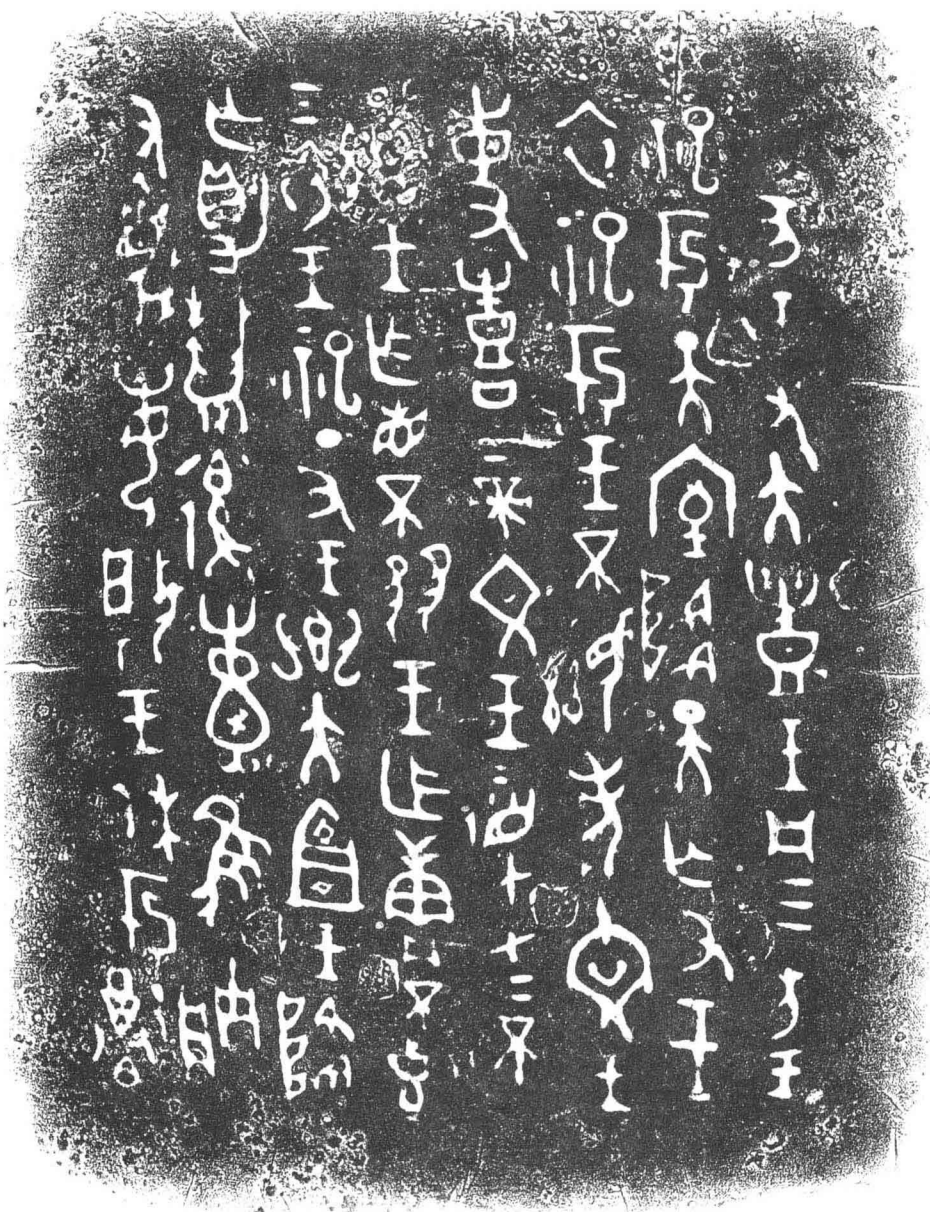 王又大豊王凡三方王
祀于天室降天亡又王
衣祀于王不顯考文王
事喜上帝文王在上不
顯王乍省不王乍不克
衣王祀丁丑王鄉大宜王降
亡爵復隹朕
又每揚王休于